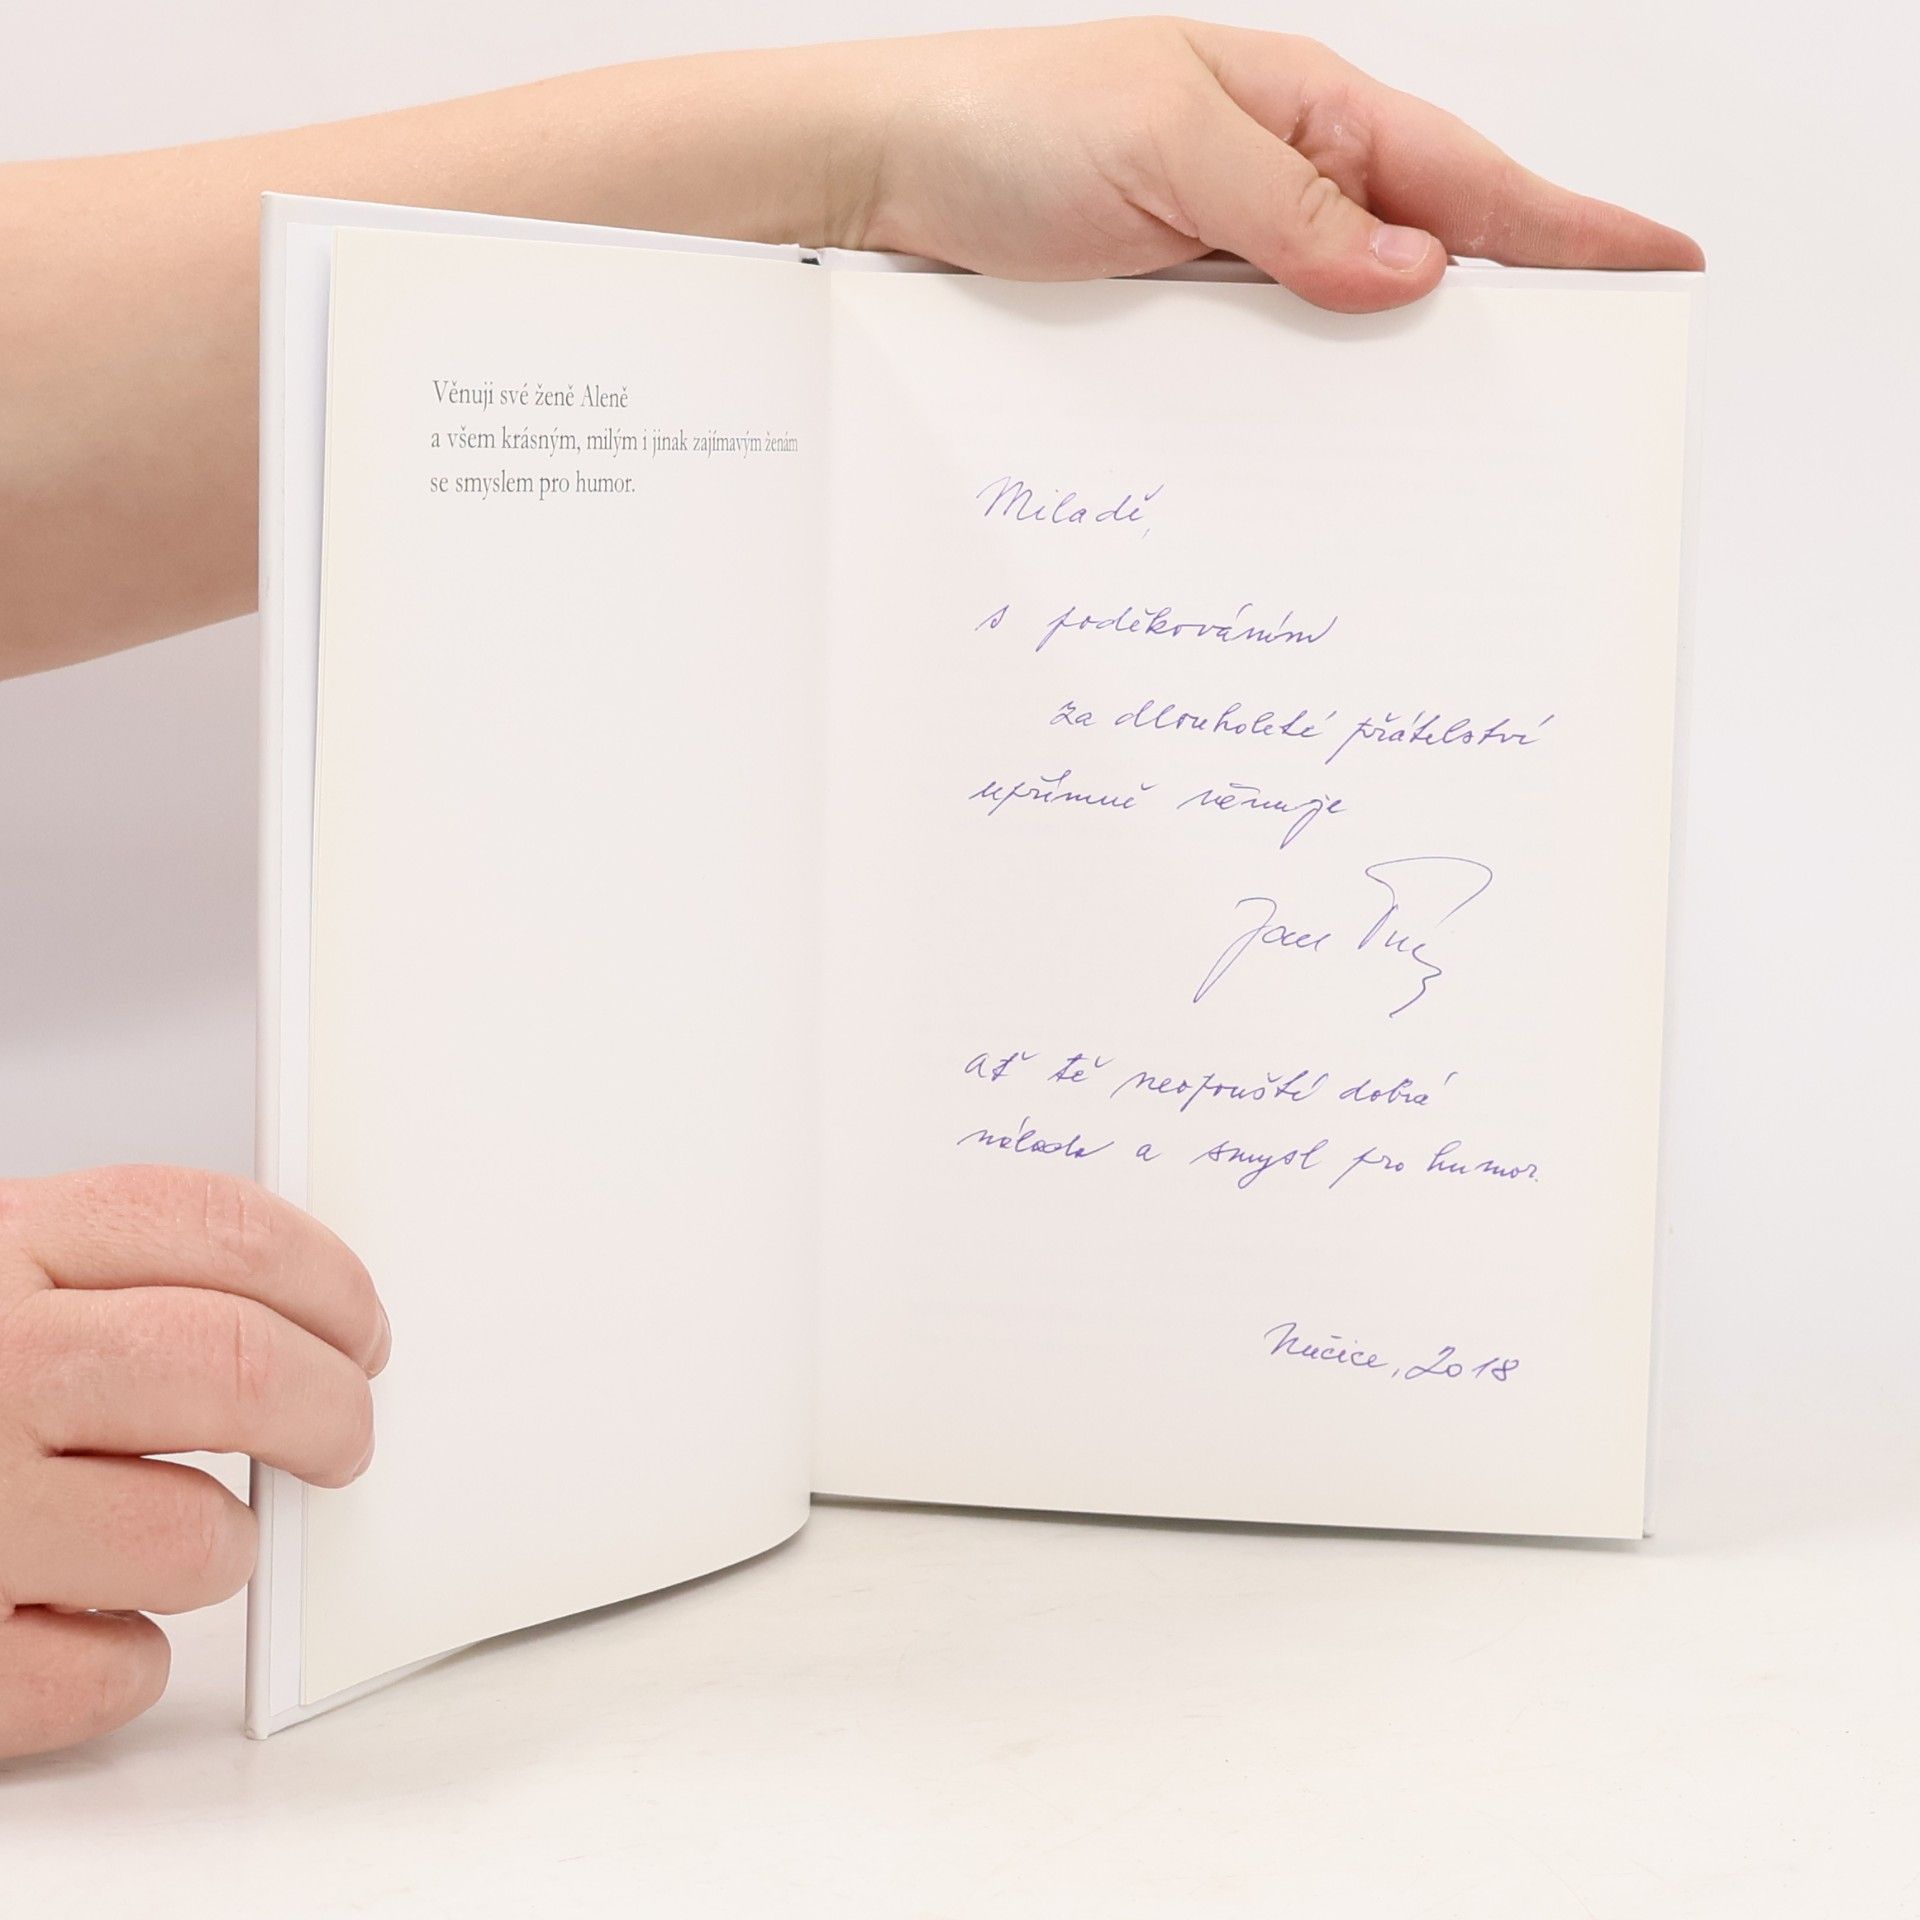 Věnuji své ženě Aleně
a všem krásným, milým i jinak zajímavým ženám
se smyslem pro humor.
Miladě,
s poděkováním
za dlouholeté přátelství
upřímně věnuje
Jan
ať tě neopouští dobrá
nálada a smysl pro humor.
Nučice, 2018